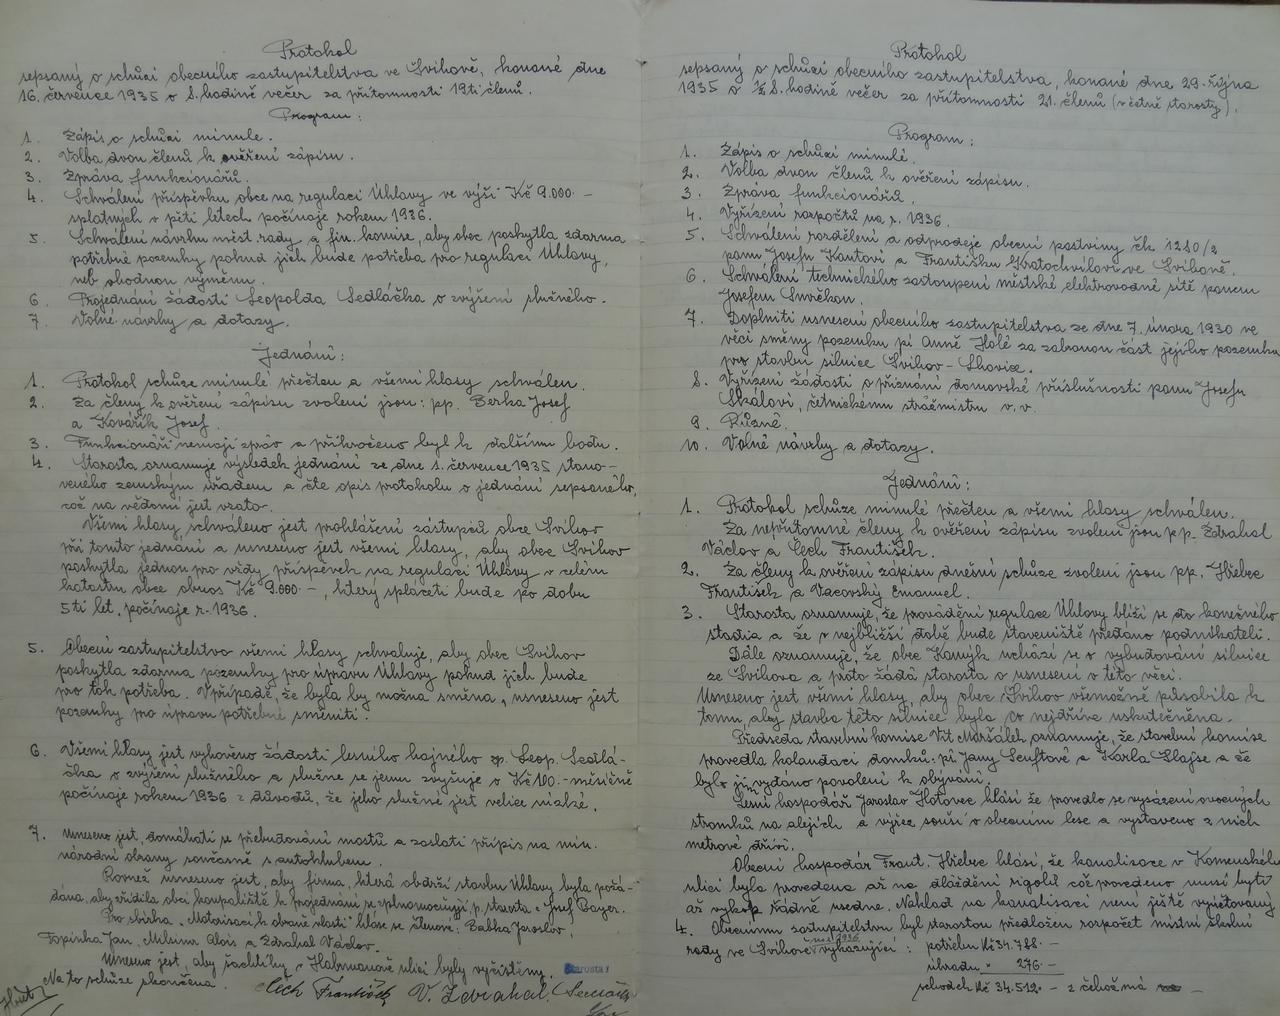 Protokol
sepsaný o schůzi obecního zastupitelstva ve Švihově, konané dne
16. července 1935 o 8. hodině večer za přítomnosti 19ti členů.
Program:
1. Zápis o schůzi minulé.
2. Volba dvou členů k ověření zápisu.
3. Zpráva funkcionářů.
4. Schválení příspěvku obce na regulaci Úhlavy ve výši Kč 9.000.-
splatných v pěti letech počínaje rokem 1936.
5. Schválení návrhu měst. rady a fin. komise, aby obec poskytla zdarma
potřebné pozemky pokud jich bude potřeba pro regulaci Úhlavy,
neb vhodnou výměnu.
6. Projednání žádosti Leopolda Sedláčka o zvýšení služného.
7. Volné návrhy a dotazy.
Jednání:
1. Protokol schůze minulé přečten a všemi hlasy schválen.
2. Za členy k ověření zápisu zvoleni jsou: pp. Berka Josef
a Kovářík Josef.
3. Funkcionáři nemají zpráv a přikročeno byl k dalšímu bodu.
4. Starosta oznamuje výsledek jednání ze dne 1. července 1935 stano-
veného zemským úřadem a čte opis protokolu o jednání sepsaného,
což na vědomí jest vzato.
Všemi hlasy schváleno jest prohlášení zástupců obce Švihov
při tomto jednání a usneseno jest všemi hlasy, aby obec Švihov
poskytla jednou pro vždy příspěvek na regulaci Úhlavy v celém
katastru obce obnos Kč 9.000.-, který spláceti bude po dobu
5ti let, počínaje r. 1936.
5. Obecní zastupitelstvo všemi hlasy schvaluje, aby obec Švihov
poskytla zdarma pozemky pro úpravu Úhlavy pokud jich bude
pro tok potřeba. V případě, že byla by možná směna, usneseno jest
pozemky pro úpravu potřebné směniti.
6. Všemi hlasy jest vyhověno žádosti lesního hajného p. Leop. Sedlá-
čka o zvýšení služného a služné se jemu zvyšuje o Kč 100.- měsíčně
počínaje rokem 1936 z důvodů, že jeho služné jest velice nízké.
7. Usneseno jest, domáhati se přebudování mostů a zaslati přípis na min.
národní obrany současně s autoklubem.
Rovněž usneseno jest, aby firma, která obdrží stavbu Úhlavy byla požá-
dána, aby zřídila obci koupaliště k projednání se zplnomocňují p. starosta a Josef Bayer.
Pro sbírku "Motorisací k obraně vlasti" hlásí se členové: Babka Jaroslav,
Topinka Jan, Milsimr Alois a Zdrahal Václav.
Usneseno jest, aby šachtíky v Habrmanově ulici byly vyčistěny.
Na to schůze skončena.
Starosta:
Čech František V. Zdrahal.
Protokol
sepsaný o schůzi obecního zastupitelstva, konané dne 29. října
1935 o ½ 8. hodině večer za přítomnosti 21. členů (včetně starosty).
Program:
1. Zápis o schůzi minulé.
2. Volba dvou členů k ověření zápisu.
3. Zpráva funkcionářů.
4. Vyřízení rozpočtů na r. 1936.
5. Schválení rozdělení a odprodeje obecní pastviny čk 1280/2
panu Josefu Kantovi a Františku Kratochvílovi ve Švihově.
6. Schválení technického zastoupení městské elektrovodné sítě panem
Josefem Smrčkou.
7. Doplniti usnesení obecního zastupitelstva ze dne 7. února 1930 ve
věci směny pozemku pí Anně Holé za zabranou část jejího pozemku
pro stavbu silnice Švihov - Lhovice.
8. Vyřízení žádosti o přiznání domovské příslušnosti panu Josefu
Skálovi, četnickému strážmistru v. v.
9. Různé.
10. Volné návrhy a dotazy.
Jednání:
1. Protokol schůze minulé přečten a všemi hlasy schválen.
Za nepřítomné členy k ověření zápisu zvoleni jsou pp. Zdrahal
Václav a Čech František.
2. Za členy k ověření zápisu dnešní schůze zvoleni jsou pp. Hřebec
František a Vacovský Emanuel.
3. Starosta oznamuje, že provádění regulace Úhlavy blíží se do konečného
stadia a že v nejbližší době bude staveniště předáno podnikateli.
Dále oznamuje, že obec Kamýk uchází se o vybudování silnice
ze Švihova a proto žádá starosta o usnesení v této věci.
Usneseno jest všemi hlasy, aby obec Švihov všemožně působila k
tomu, aby stavba této silnice byla co nejdříve uskutečněna.
Předseda stavební komise Vít Maršálek, oznamuje, že stavební komise
provedla kolaudaci domků: pí Jany Senftové a Karla Glajse a že
bylo jim vydáno povolení k obývání.
Lesní hospodář Jaroslav Hotovec hlásí že provedlo se vysázení ovocných
stromků na alejích a výřez souší v obecním lese a vystaveno z nich
metrové dříví.
Obecní hospodář Frant. Hřebec hlásí, že kanalisace v Komenského
ulici byla provedena až na dláždění rigolů což provedeno musí býti
až výkop řádně usedne. Náklad na kanalisaci není ještě vyúčtovaný
4. Obecnímu zastupitelstvu byl starostou předložen rozpočet místní školní
rady ve Švihově na r. 1936 vykazující: potřebu Kč 34.788.-
úhradu " 276.-
schodek Kč 34.512.- z čehož má